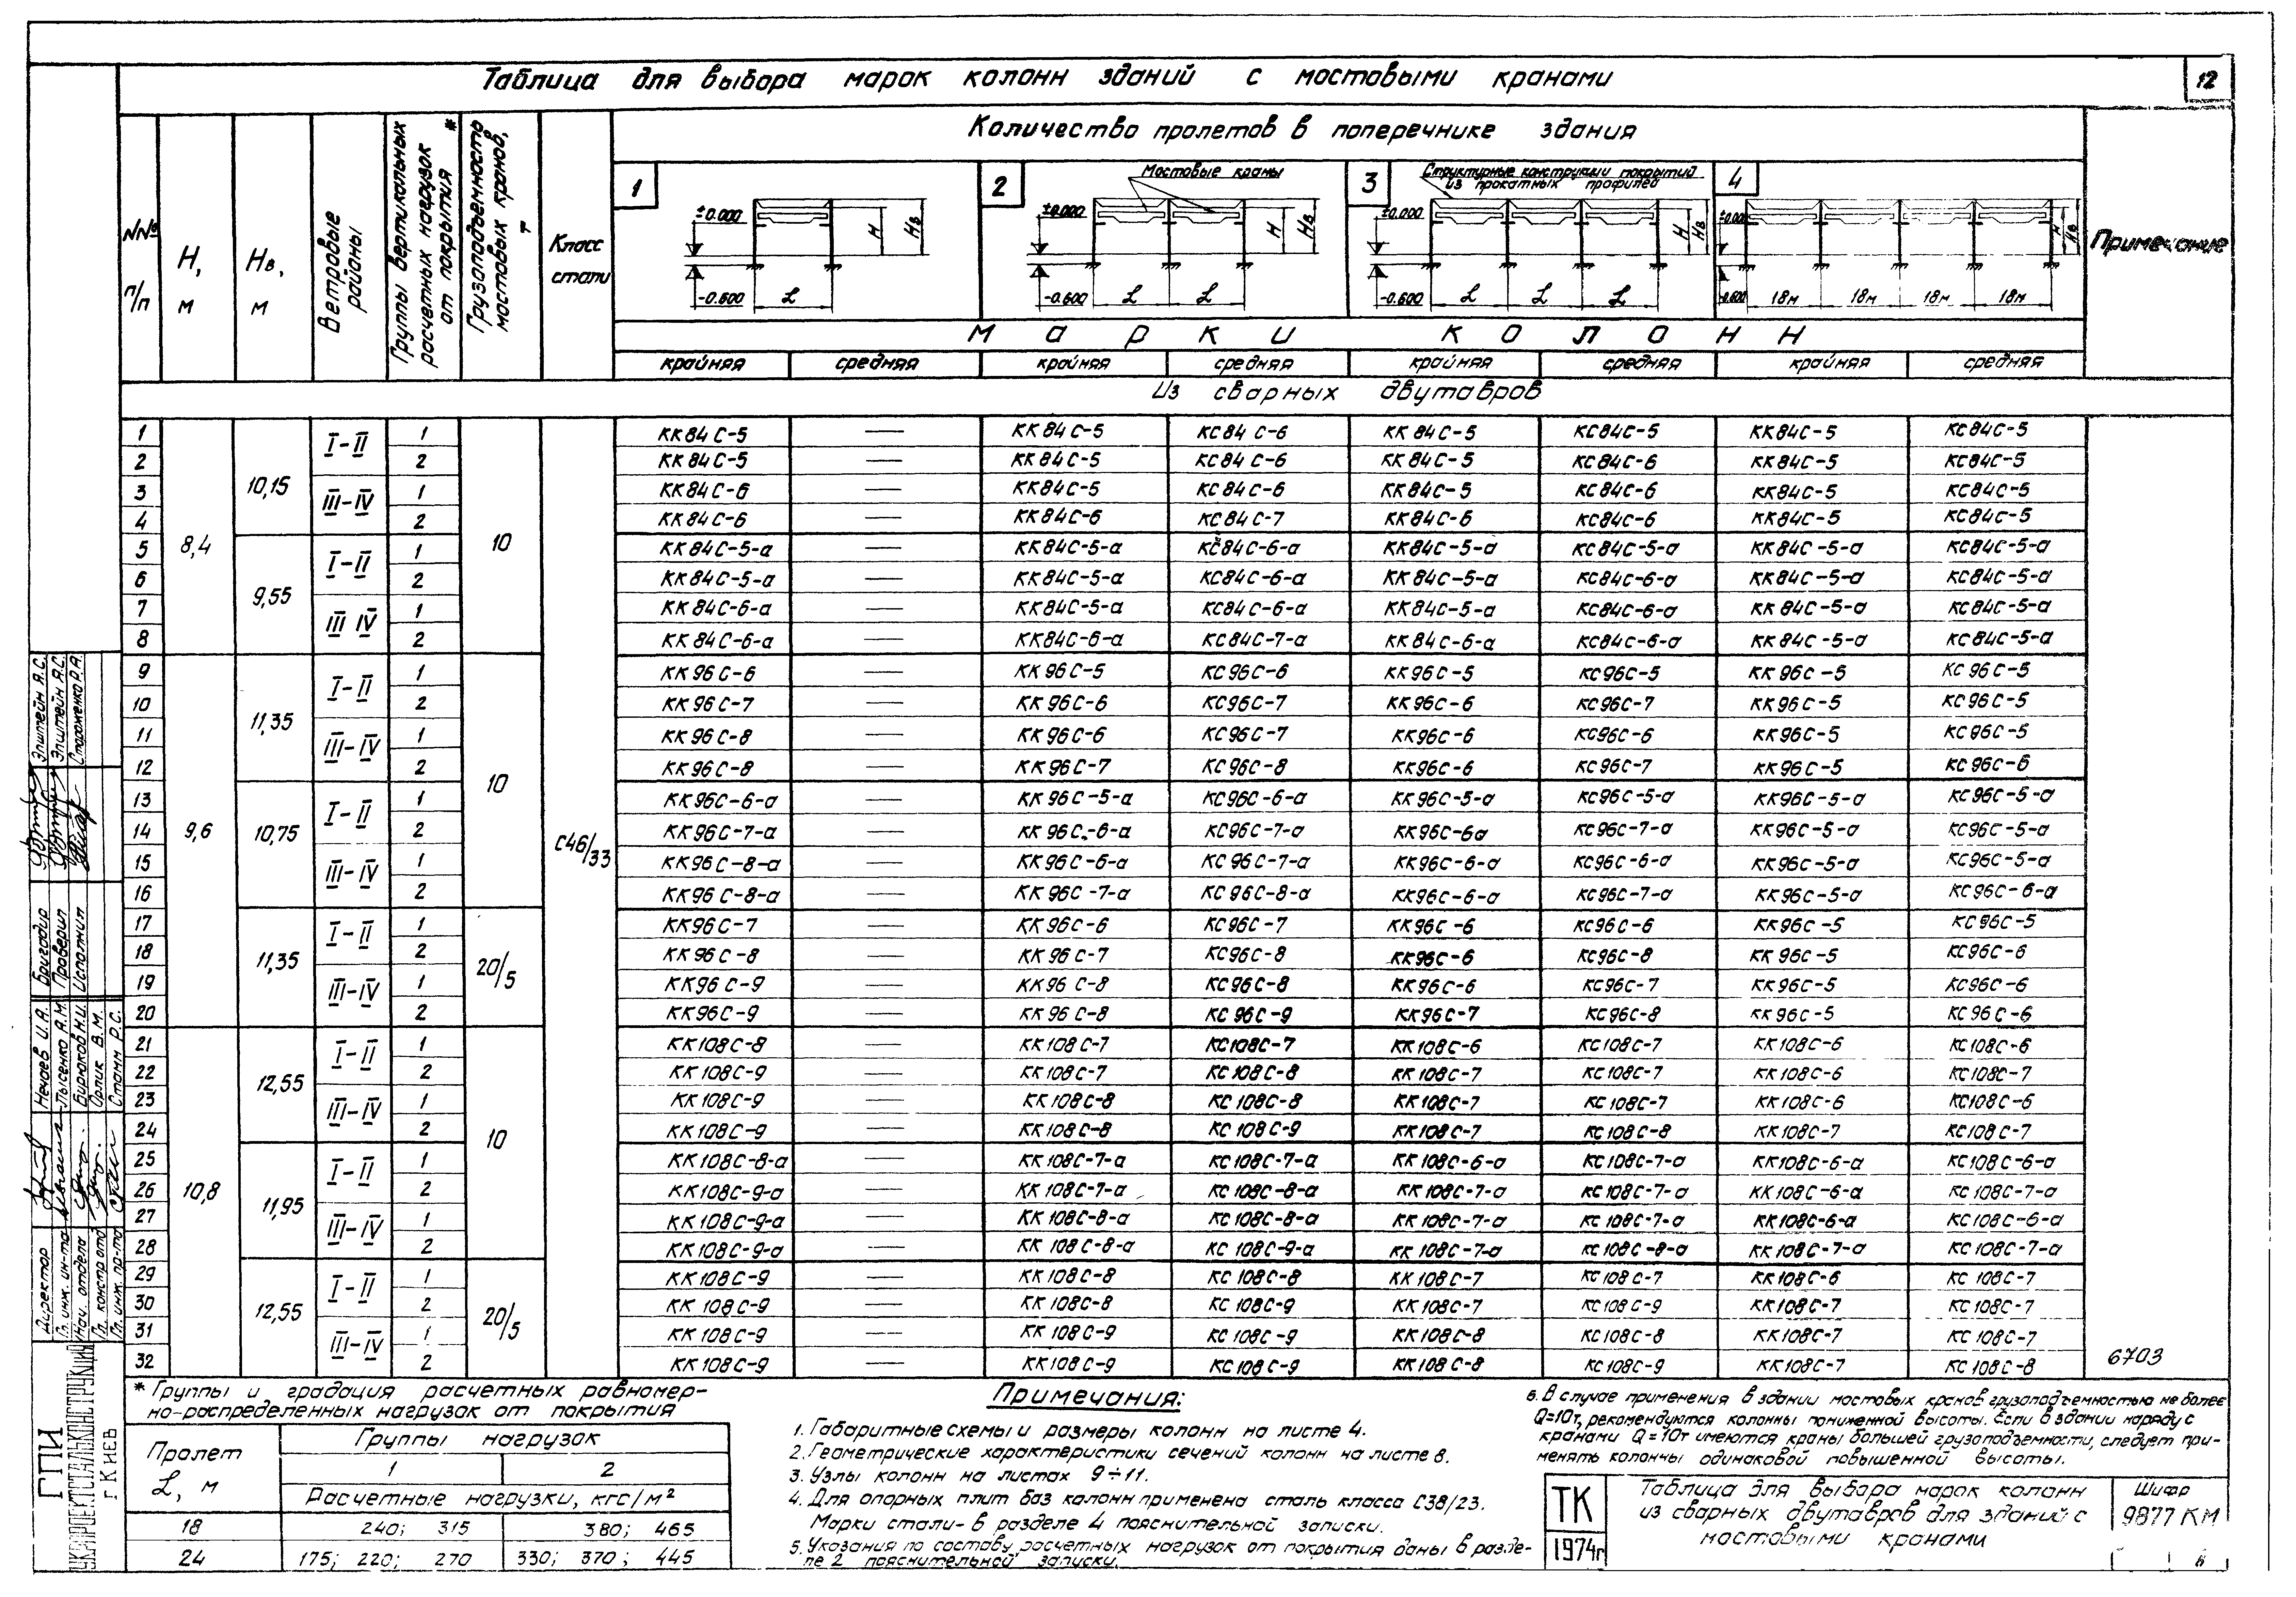 Таблица для выбора марок колонн зданий с мостовыми кранами
12
NNº п/п
Н, м
Нв, м
Ветровые районы
Группы вертикальных расчетных нагрузок от покрытия *
Грузоподъемность мостовых кранов, т
Класс стали
Количество пролетов в поперечнике здания
Примечание
1 2 3 4
Мостовые краны
Структурные конструкции покрытий из прокатных профилей
±0.000 ±0.000 ±0.000 ±0.000
Н Нв Н Нв Н Нв Н Нв
-0.600 L -0.600 L L -0.600 L L L -0.600 18м 18м 18м 18м
Марки колонн
крайняя средняя крайняя средняя крайняя средняя крайняя средняя
Из сварных двутавров
1 8,4 10,15 I-II 1 10 С46/33 КК84С-5 — КК84С-5 КС84С-6 КК84С-5 КС84С-5 КК84С-5 КС84С-5
2 2 КК84С-5 — КК84С-5 КС84С-6 КК84С-5 КС84С-6 КК84С-5 КС84С-5
3 III-IV 1 КК84С-6 — КК84С-5 КС84С-6 КК84С-5 КС84С-6 КК84С-5 КС84С-5
4 2 КК84С-6 — КК84С-6 КС84С-7 КК84С-6 КС84С-6 КК84С-5 КС84С-5
5 9,55 I-II 1 КК84С-5-а — КК84С-5-а КС84С-6-а КК84С-5-а КС84С-5-а КК84С-5-а КС84С-5-а
6 2 КК84С-5-а — КК84С-5-а КС84С-6-а КК84С-5-а КС84С-6-а КК84С-5-а КС84С-5-а
7 III IV 1 КК84С-6-а — КК84С-5-а КС84С-6-а КК84С-5-а КС84С-6-а КК84С-5-а КС84С-5-а
8 2 КК84С-6-а — КК84С-6-а КС84С-7-а КК84С-6-а КС84С-6-а КК84С-5-а КС84С-5-а
9 9,6 11,35 I-II 1 10 КК96С-6 — КК96С-5 КС96С-6 КК96С-5 КС96С-5 КК96С-5 КС96С-5
10 2 КК96С-7 — КК96С-6 КС96С-7 КК96С-6 КС96С-7 КК96С-5 КС96С-5
11 III-IV 1 КК96С-8 — КК96С-6 КС96С-7 КК96С-6 КС96С-6 КК96С-5 КС96С-5
12 2 КК96С-8 — КК96С-7 КС96С-8 КК96С-6 КС96С-7 КК96С-5 КС96С-6
13 10,75 I-II 1 КК96С-6-а — КК96С-5-а КС96С-6-а КК96С-5-а КС96С-5-а КК96С-5-а КС96С-5-а
14 2 КК96С-7-а — КК96С-6-а КС96С-7-а КК96С-6а КС96С-7-а КК96С-5-а КС96С-5-а
15 III-IV 1 КК96С-8-а — КК96С-6-а КС96С-7-а КК96С-6-а КС96С-6-а КК96С-5-а КС96С-5-а
16 2 КК96С-8-а — КК96С-7-а КС96С-8-а КК96С-6-а КС96С-7-а КК96С-5-а КС96С-6-а
17 11,35 I-II 1 20/5 КК96С-7 — КК96С-6 КС96С-7 КК96С-6 КС96С-6 КК96С-5 КС96С-5
18 2 КК96С-8 — КК96С-7 КС96С-8 КК96С-6 КС96С-8 КК96С-5 КС96С-6
19 III-IV 1 КК96С-9 — КК96С-8 КС96С-8 КК96С-6 КС96С-7 КК96С-5 КС96С-6
20 2 КК96С-9 — КК96С-8 КС96С-9 КК96С-7 КС96С-8 КК96С-5 КС96С-6
21 10,8 12,55 I-II 1 10 КК108С-8 — КК108С-7 КС108С-7 КК108С-6 КС108С-7 КК108С-6 КС108С-6
22 2 КК108С-9 — КК108С-7 КС108С-8 КК108С-7 КС108С-7 КК108С-6 КС108С-7
23 III-IV 1 КК108С-9 — КК108С-8 КС108С-8 КК108С-7 КС108С-7 КК108С-6 КС108С-6
24 2 КК108С-9 — КК108С-8 КС108С-9 КК108С-7 КС108С-8 КК108С-7 КС108С-7
25 11,95 I-II 1 КК108С-8-а — КК108С-7-а КС108С-7-а КК108С-6-а КС108С-7-а КК108С-6-а КС108С-6-а
26 2 КК108С-9-а — КК108С-7-а КС108С-8-а КК108С-7-а КС108С-7-а КК108С-6-а КС108С-7-а
27 III-IV 1 КК108С-9-а — КК108С-8-а КС108С-8-а КК108С-7-а КС108С-7-а КК108С-6-а КС108С-6-а
28 2 КК108С-9-а — КК108С-8-а КС108С-9-а КК108С-7-а КС108С-8-а КК108С-7-а КС108С-7-а
29 12,55 I-II 1 20/5 КК108С-9 — КК108С-8 КС108С-8 КК108С-7 КС108С-7 КК108С-6 КС108С-7
30 2 КК108С-9 — КК108С-8 КС108С-9 КК108С-7 КС108С-9 КК108С-7 КС108С-7
31 III-IV 1 КК108С-9 — КК108С-9 КС108С-9 КК108С-8 КС108С-8 КК108С-7 КС108С-7
32 2 КК108С-9 — КК108С-9 КС108С-9 КК108С-8 КС108С-9 КК108С-7 КС108С-8
6703
* Группы и градация расчетных равномер-
но-распределенных нагрузок от покрытия
Пролет L, м
Группы нагрузок
1 2
Расчетные нагрузки, кгс/м²
18 240; 315 380; 465
24 175; 220; 270 330; 370; 445
Примечания:
1. Габаритные схемы и размеры колонн на листе 4.
2. Геометрические характеристики сечений колонн на листе 8.
3. Узлы колонн на листах 9÷11.
4. Для опорных плит баз колонн применена сталь класса С38/23.
Марки стали- в разделе 4 пояснительной записки.
5. Указания по составу расчетных нагрузок от покрытия даны в разде-
ле 2 пояснительной записки.
6. В случае применения в здании мостовых кранов грузоподъемностью не более
Q=10т, рекомендуются колонны пониженной высоты. Если в здании наряду с
кранами Q=10т имеются краны большей грузоподъемности, следует при-
менять колонны одинаковой повышенной высоты.
ТК
1974г
Таблица для выбора марок колонн
из сварных двутавров для зданий с
мостовыми кранами
Шифр
9877 КМ
Эпштейн Я.С.
Эпштейн Я.С.
Староженко Р.А.
Бригадир
Проверил
Исполнил
Нечаев И.А.
Лысенко А.М.
Бирюков Н.И.
Орлик В.М.
Стамм Р.С.
Директор
Гл. инж. ин-та
Нач. отдела
Гл. констр отд
Гл. инж. пр-та
ГПИ
УКРПРОЕКТСТАЛЬКОНСТРУКЦИЯ
г КИЕВ